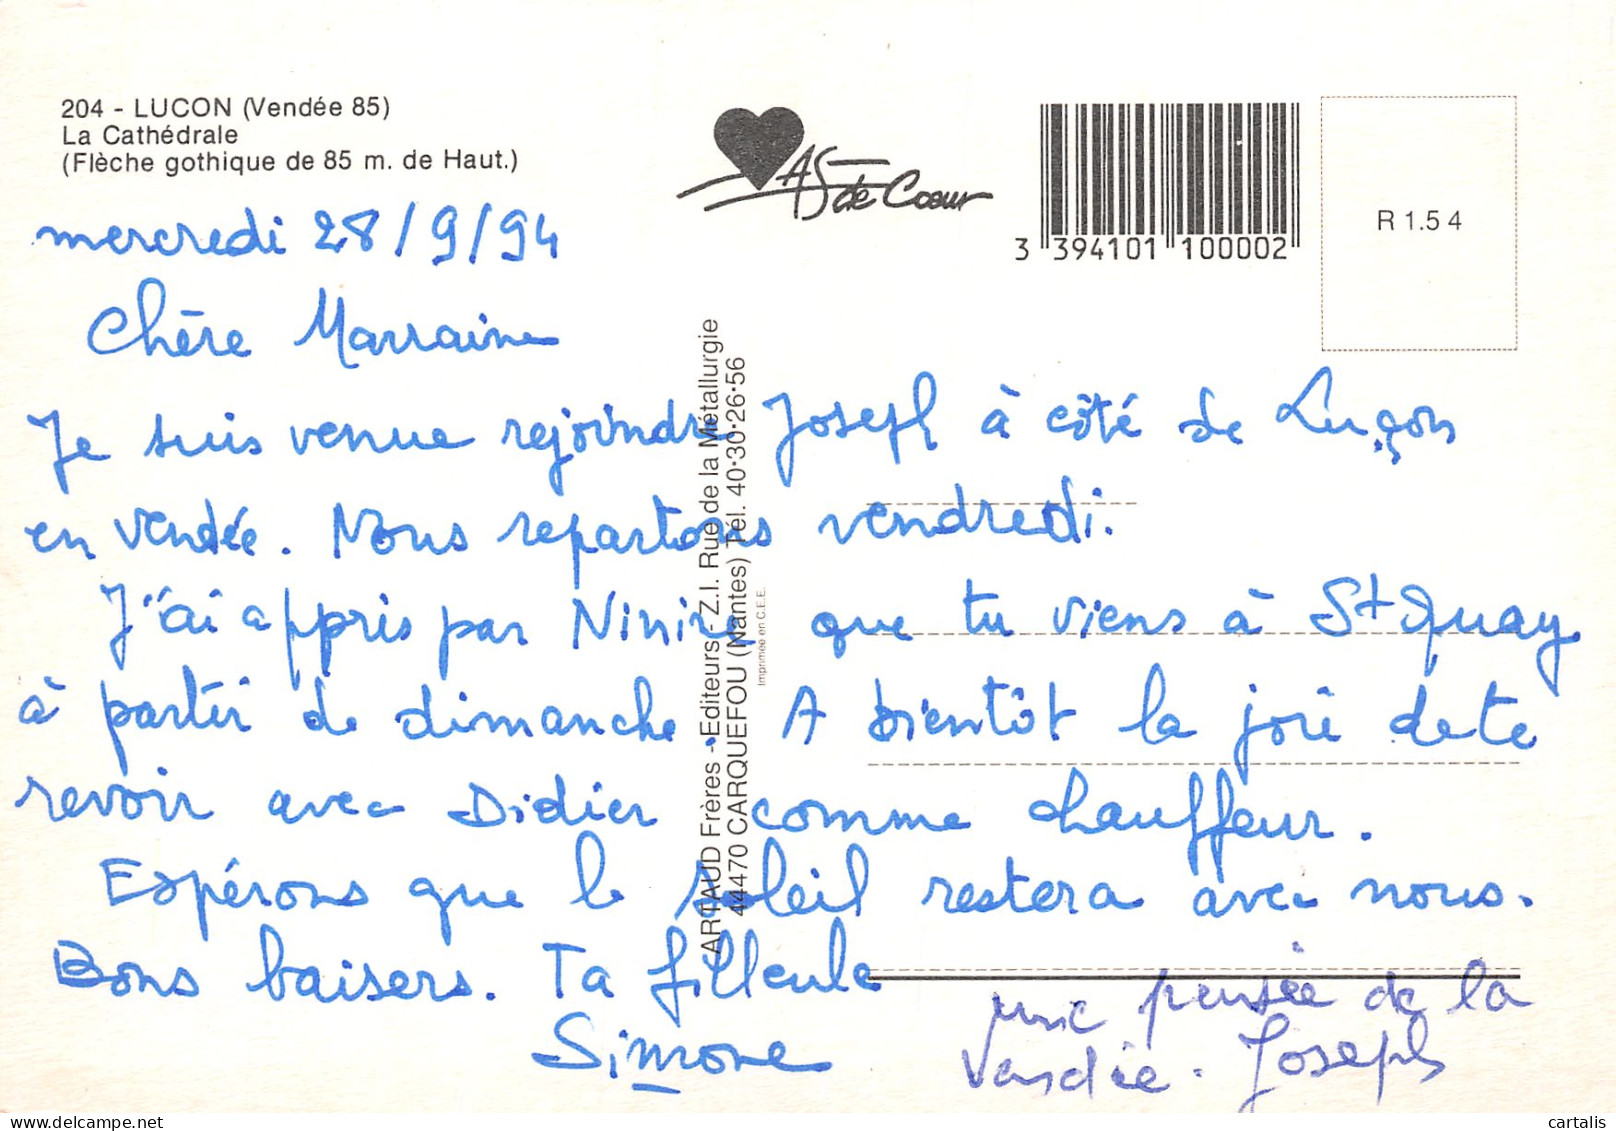 204 - LUCON (Vendée 85)
La Cathédrale
(Flèche gothique de 85 m. de Haut.)
AS de Cœur
3 394101 100002
R 1.5 4
mercredi 28/9/94
Chère Marraine
Je suis venue rejoindre Joseph à côté de Luçon
en Vendée. Nous repartons vendredi.
J'ai appris par Ninie que tu viens à St Quay
à partir de dimanche. A bientôt la joie de te
revoir avec Didier comme chauffeur.
Espérons que le soleil restera avec nous.
Bons baisers. Ta filleule
Simone
une pensée de la
Vendée. Joseph
ARTAUD Frères - Editeurs - Z.I. Rue de la Métallurgie
44470 CARQUEFOU (Nantes) Tél. 40-30-26-56
Imprimée en C.E.E.
delcampe.net
cartalis